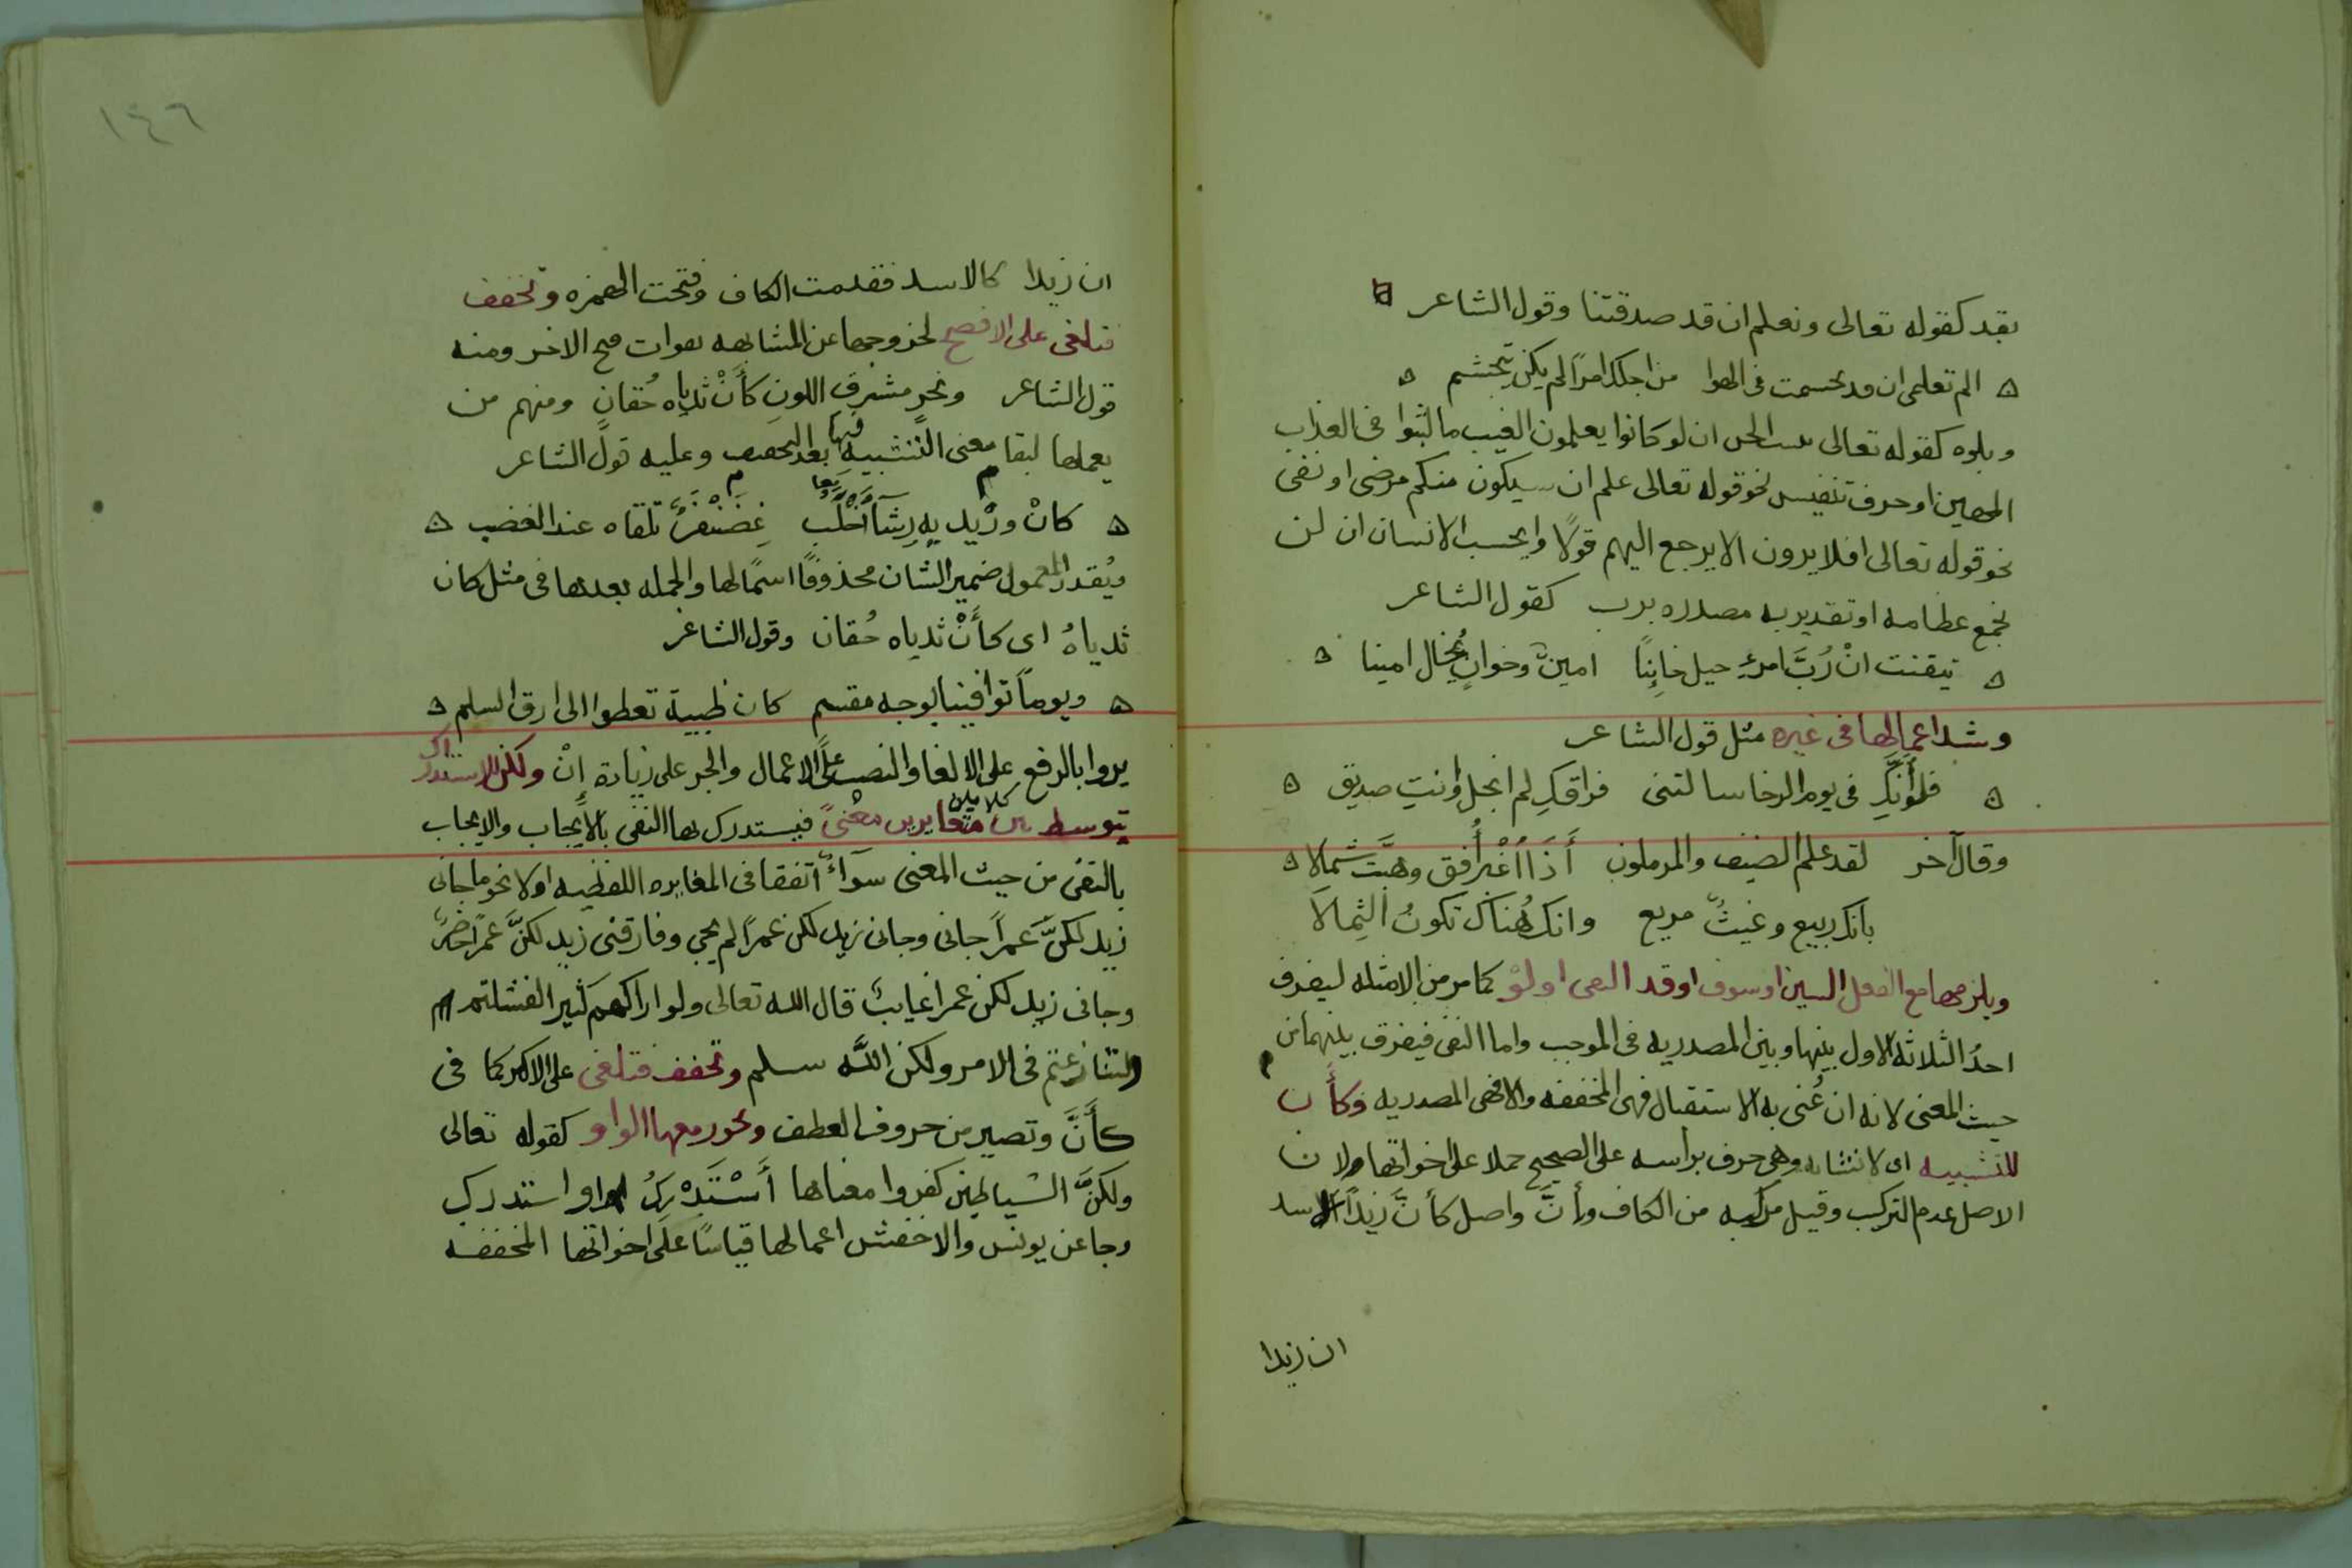 بقد كقوله تعالى ونعلم ان قد صدقتنا وقول الشاعر
الم تعلمى ان قد تجشمت فى الهوا من اجلك امرًا لم يكن يتجشم
وبلوه كقوله تعالى الجن ان لو كانوا يعلمون الغيب ما لبثوا فى العذاب
المهين او حرف تنفيس نحو قوله تعالى علم ان سيكون منكم مرضى او نفى
نحو قوله تعالى افلا يرون الا يرجع اليهم قولًا وايحسب الانسان ان لن
نجمع عظامه او تقدير به مصدره برب كقول الشاعر
تيقنت انْ رُبَّ امرءٍ حيل خاينًا امينٌ وخوانٍ يُخال امينا
وشذ اعمالها فى غيره مثل قول الشاعر
فلو أنكِ فى يوم الرخا سالتنى فراقكِ لم ابخل وانتِ صديق
وقال آخر لقد علم الضيف والمرملون أذا اغبر أُفق وهبَّت شمالا
بانك ربيع وغيثٌ مريع وانك هُناك تكونُ الثِمالاَ
ويلزمها مع الفعل السين او سوف او قد او النفى او لوْ كما مر من الامثله ليفرق
احدُ الثلاثه الاول بينها وبين المصدريه فى الموجب واما النفى فيفرق بينهما من
حيث المعنى لانه ان عُنى به الاستقبال فهى المخففه والا فهى المصدريه وكأن
للتشبيه اى لانشايه وهى حرف براسه على الصحيح حملا على اخواتها ولان
الاصل عدم التركيب وقيل مركبه من الكاف وأنَّ واصل كأنَّ زيداً الاسد
ان زيدا
١٤٦
ان زيدا كالاسد فقدمت الكاف وفتحت الهمزه وتخفف
فتلغى على الافصح لخروجها عن المشابهه بفوات فتح الاخر ومنه
قول الشاعر ونحرٍ مشرق اللونِ كأنْ ثدياه حُقانِ ومنهم من
يعملها لبقا معنى التشبيه فيها بعد التخفيف وعليه قول الشاعر
كانْ وريديه رِشآ خُلْب غضَنْفرٌ تلقاه عند الغضب
ويُقدر المعمول ضمير الشان محذوفًا اسمًا لها والجمله بعدها فى مثل كان
ثدياهُ اى كأنْ ثدياه حُقان وقول الشاعر
ويوماً توافينا بوجه مقسم كان ظبية تعطوا الى وارق السلم
يروا بالرفع على الالغا والنصب على الاعمال والجر على زيادة انْ ولكن للاستدراك
يتوسط بين كلامين متغايرين معنىً فيستدرك بها النفى بالأيجاب والايجاب
بالنفى من حيث المعنى سوآءٌ اتفقا فى المغايره اللفظيه او لا نحو ما جانى
زيد لكنَّ عمراً جانى وجانى زيد لكن عمرًا لم يجى وفارقنى زيد لكنَّ عمراً حاضرٌ
وجانى زيد لكن عمرا غايبٌ قال الله تعالى ولو اراكهم كثيرا لفشلتم
ولتنازعتم فى الامر ولكن اللَّه سلم وتخفف فتلغى على الاكثر كما فى
كأنَّ وتصير من حروف العطف ويجوز معها الواو كقوله تعالى
ولكنَّ الشياطين كفروا معناها أَسْتَدْرِكُ او استدرك
وجا عن يونس والاخفش اعمالها قياسًا على اخواتها المخففه